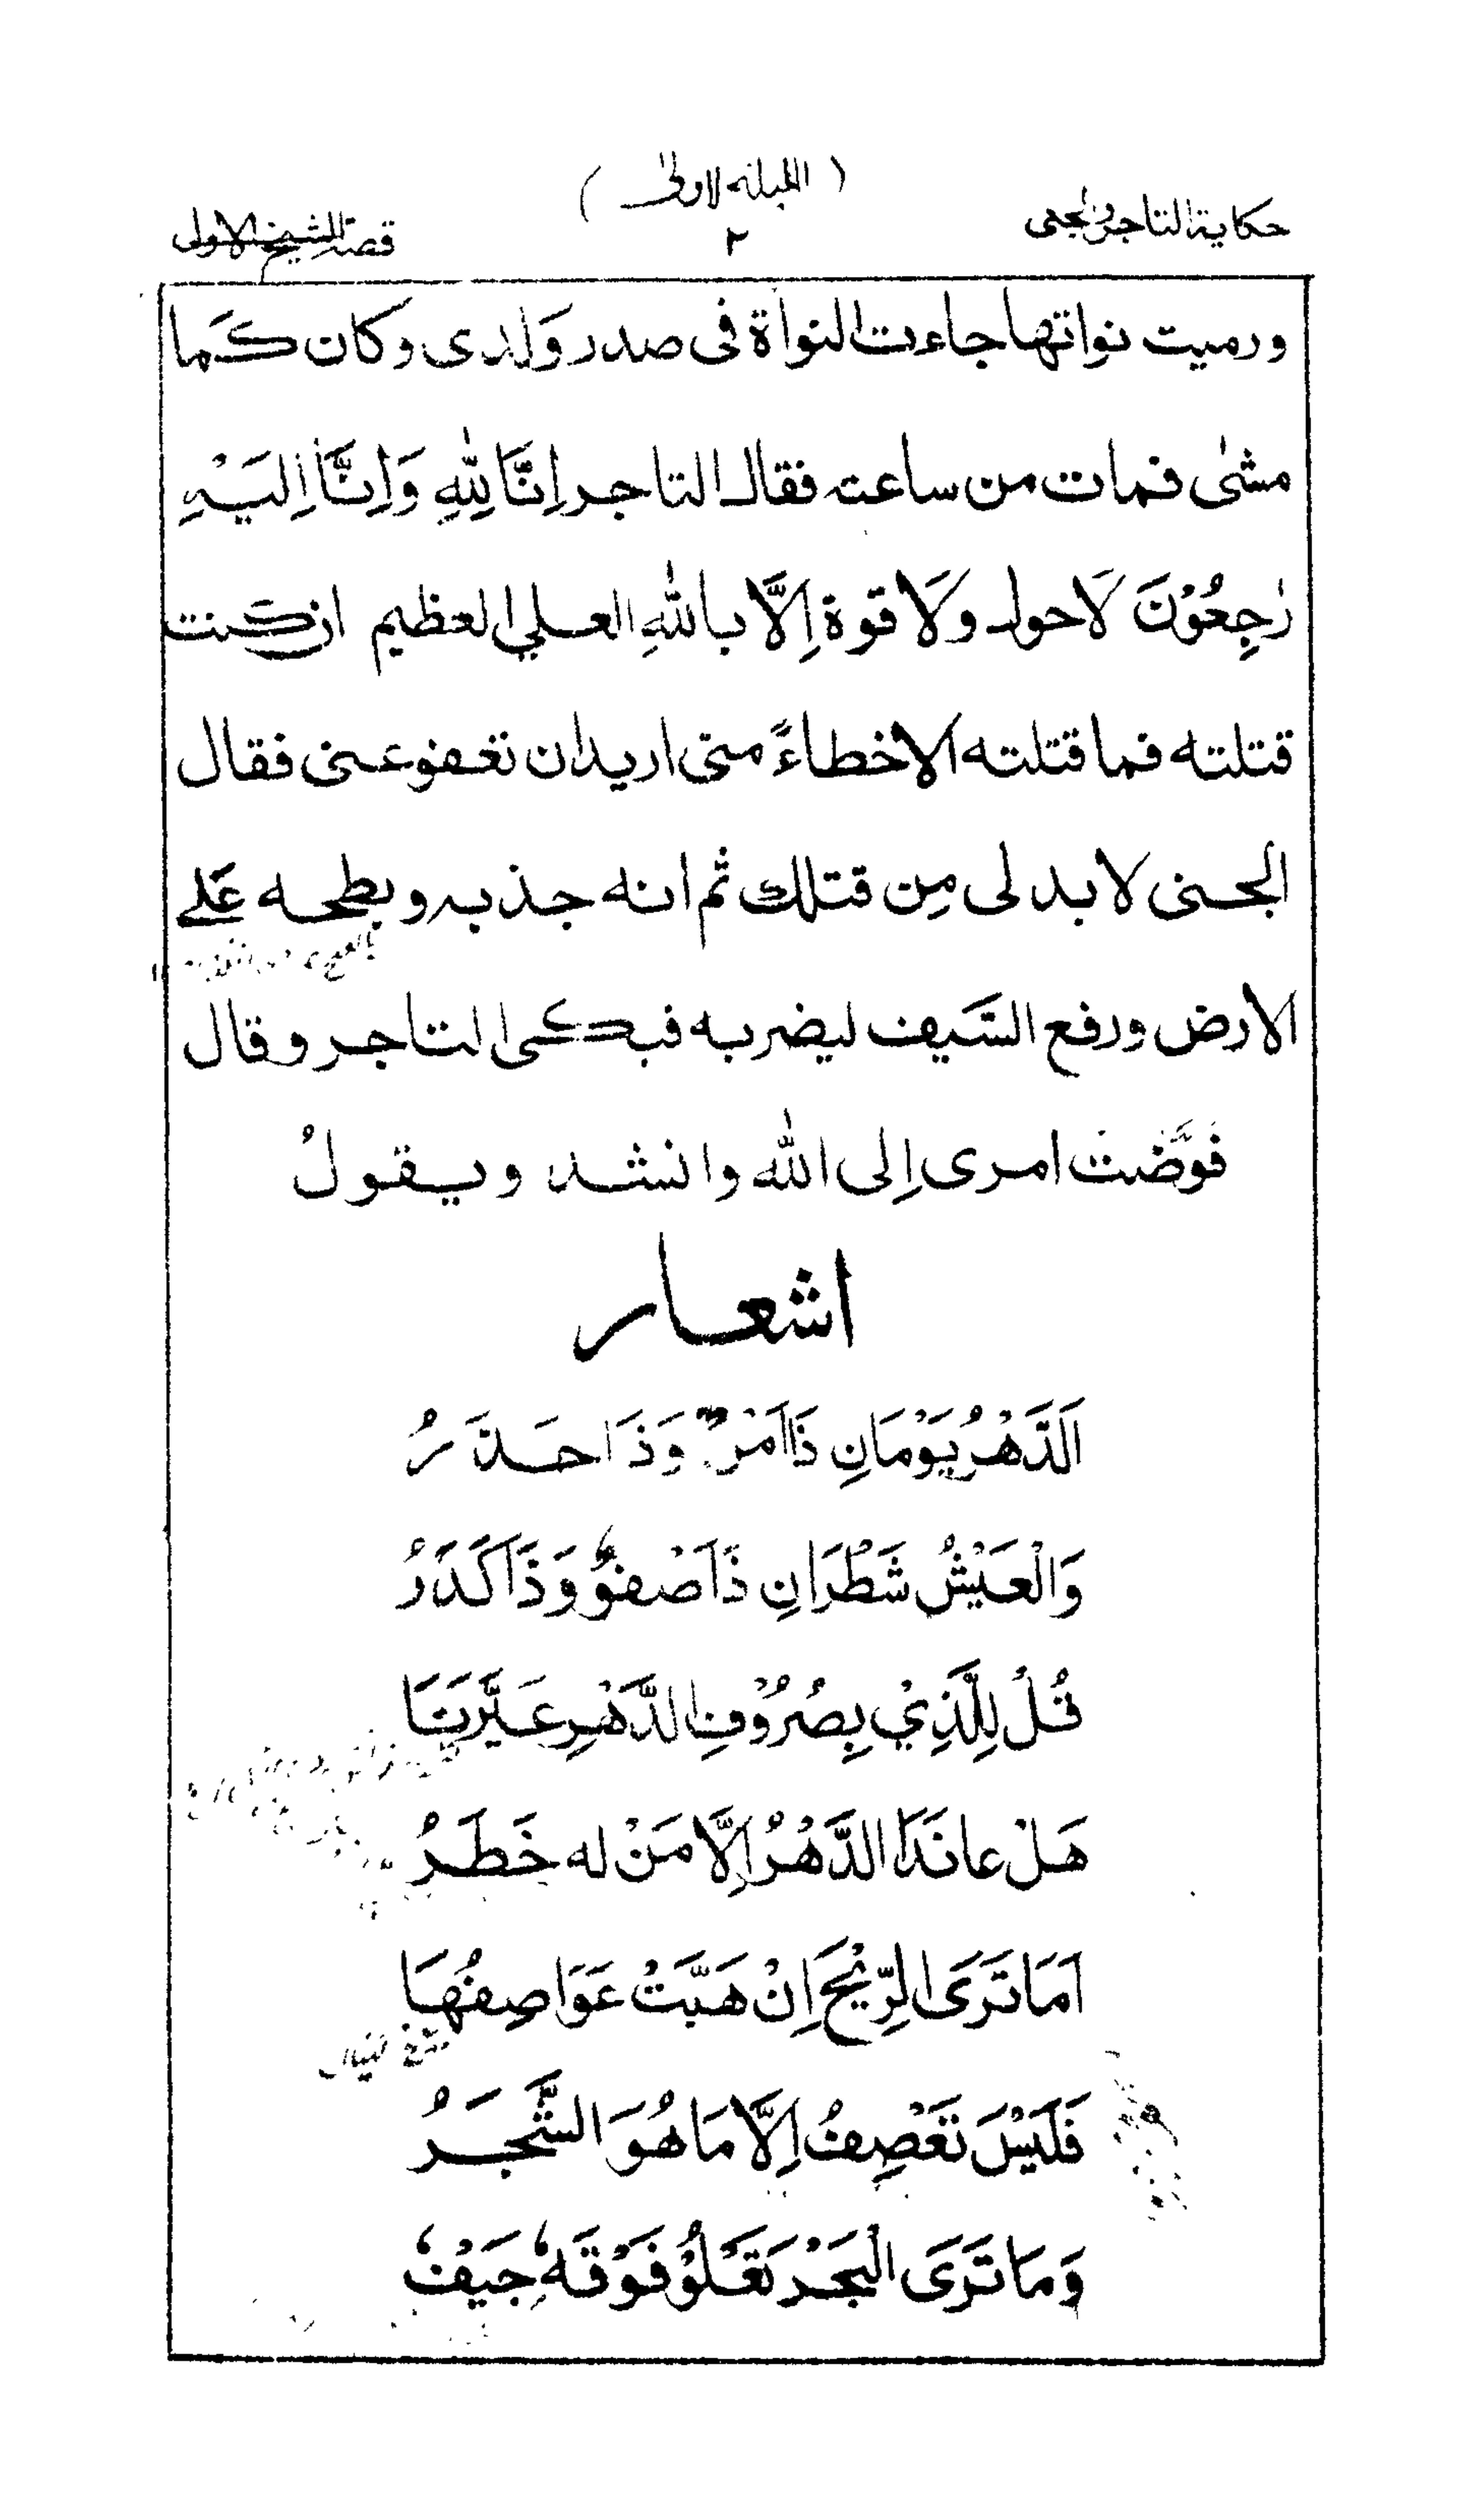 (الليلة الاولى)
حكاية التاجر والجنى
٢
قصة الشيخ الاولى
ورميت نواتها جاءت النواة فى صدر وَلدى وكان كَما
مشىٰ فمات من ساعته فقال التاجر اِنَّا لِلّٰهِ وَاِنَّا اِلَيْهِ
رٰجِعُوْنَ لَاحول ولَا قوة اِلَّا باللّٰهِ العلي العظيم ان كنت
قتلته فما قتلته الا خطاءً منى اريد ان تعفو عنى فقال
الجنى لا بد لى مِن قتلك ثم انه جذبه وبطحه عَلے
الارض ورفع السَّيف ليضربه فبكى التاجر وقال
فَوَّضْت امرى اِلى اللّٰه وانشد ويقولُ
اشعار
اَلدَّهْرُ يَوْمَانِ ذَا اَمْنٌ وَذَا حَذَرُ
وَالْعَيْشُ شَطْرَانِ ذَا صَفْوٌ وَذَا كَدَرُ
قُلْ لِلَّذِيْ بِصُرُوْفِ الدَّهْرِ عَيَّرَنَا
هَلْ عانَدَ الدَّهْرُ اِلَّا مَنْ له خَطَرُ
اَمَا تَرَى الرِّيْحَ اِنْ هَبَّتْ عَوَاصِفُهَا
فَلَيْسَ تَعْصِفُ اِلَّا مَا هُوَ الشَّجَرُ
وَمَا تَرَى الْبَحْرَ تَعْلُوْ فَوْقَهٗ جِيَفٌ